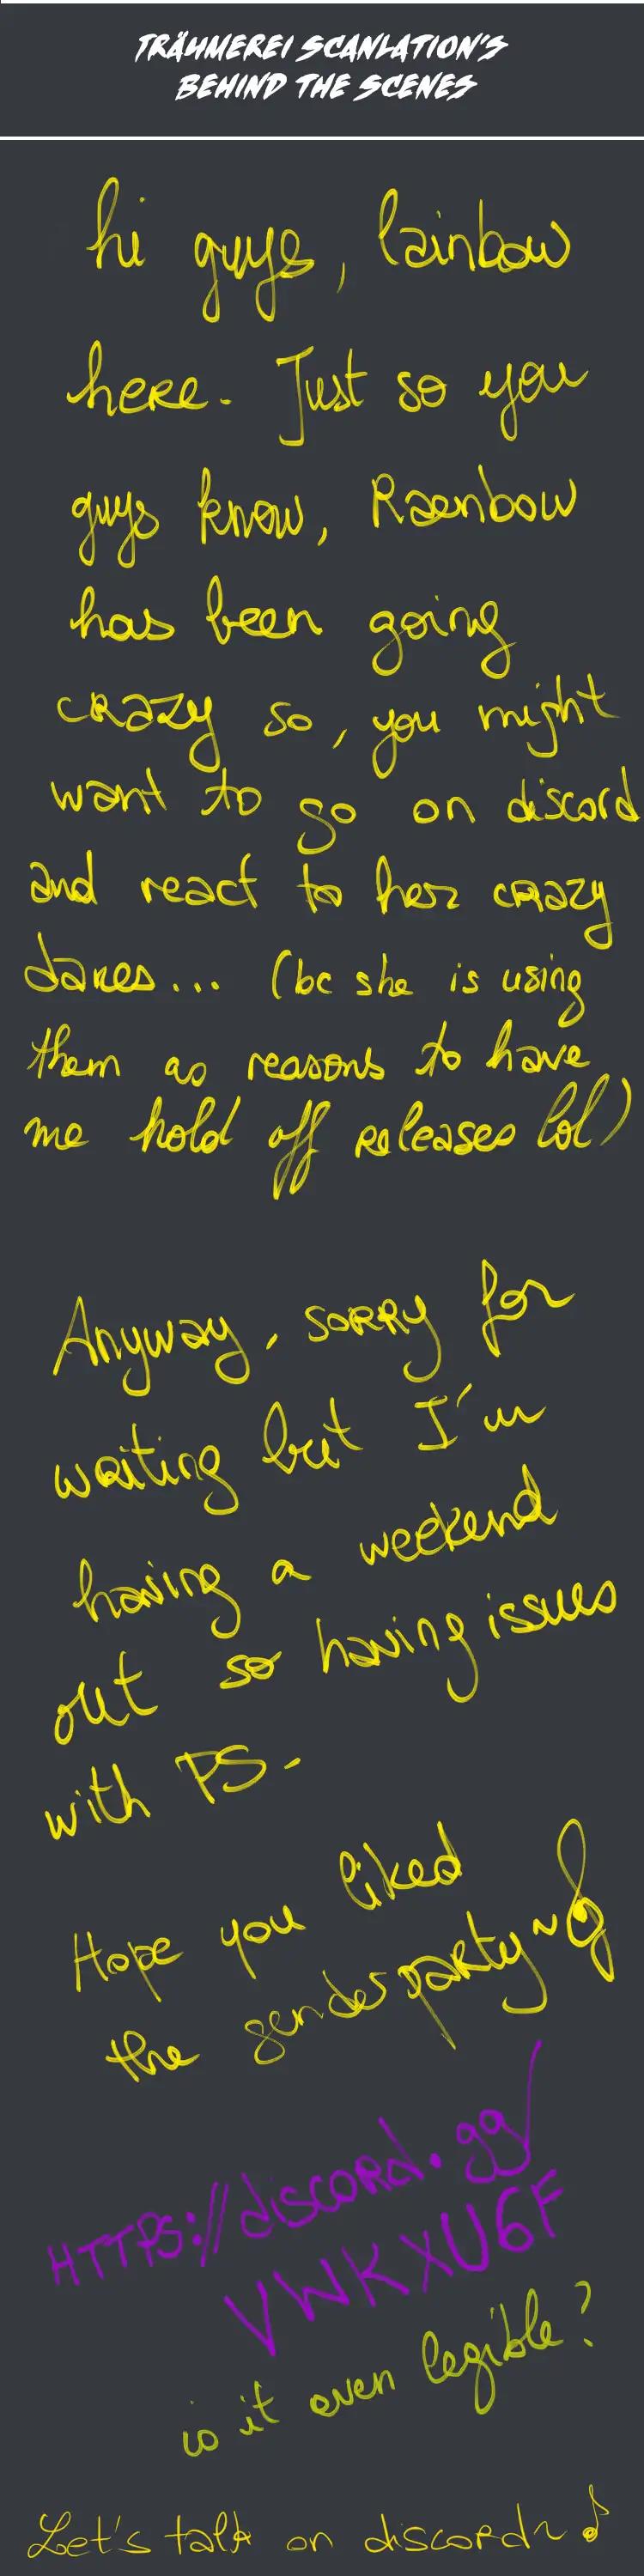 TRÄUMEREI SCANLATION'S
BEHIND THE SCENES
hi guys, lainbow
here. Just so you
guys know, Raenbow
has been going
crazy so, you might
want to go on discord
and react to her crazy
dares... (bc she is using
them as reasons to have
me hold off releases lol)
Anyway, sorry for
waiting but I'm
having a weekend
out so having issues
with PS.
Hope you liked
the genderparty~
HTTPS://discord.gg/
VWKXU6F
is it even legible?
Let's talk on discord~♪